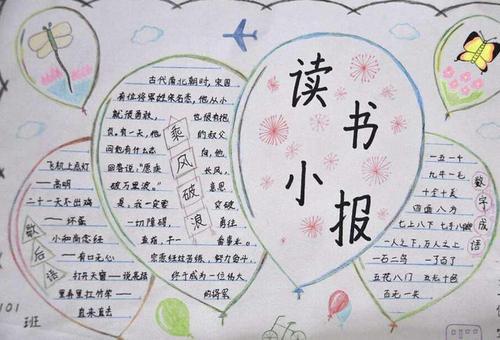 读书
小报
古代南北朝时,宋国
有位将军姓宋名悫,他从小
就很勇敢,也很有抱
负。有一天,他的叔父
问他有什么志向,他
回答说:"愿乘长风,
破万里浪。"意思
是:我一定要突破
一切障碍,勇往
直前,干一番事业。
宗悫经过苦练,努力奋斗,
终于成为一位伟大
的将军
乘风破浪
飞机上点灯
——高明
二十一天不出鸡
——坏蛋
小和尚念经
——有口无心
打开天窗——说亮话
里弄里扛竹竿——
直来直去
歇后语
101
班
一五一十
九牛一毛
十全十美
四面八方
七上八下 七手八脚
一人之下,万人之上
一石二鸟 一了百了
五花八门 五光十色
百无一失
数字成语